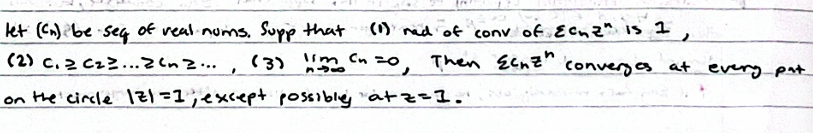 let (Cn) be seq of real nums. Supp that (1) rad of conv of ΣCnzⁿ is 1,
(2) C₁ ≥ C₂ ≥ ... ≥ Cn ≥ ... , (3) lim n→∞ Cn = 0, Then ΣCnzⁿ converges at every pnt
on the circle |z|=1, except possibly at z=1.